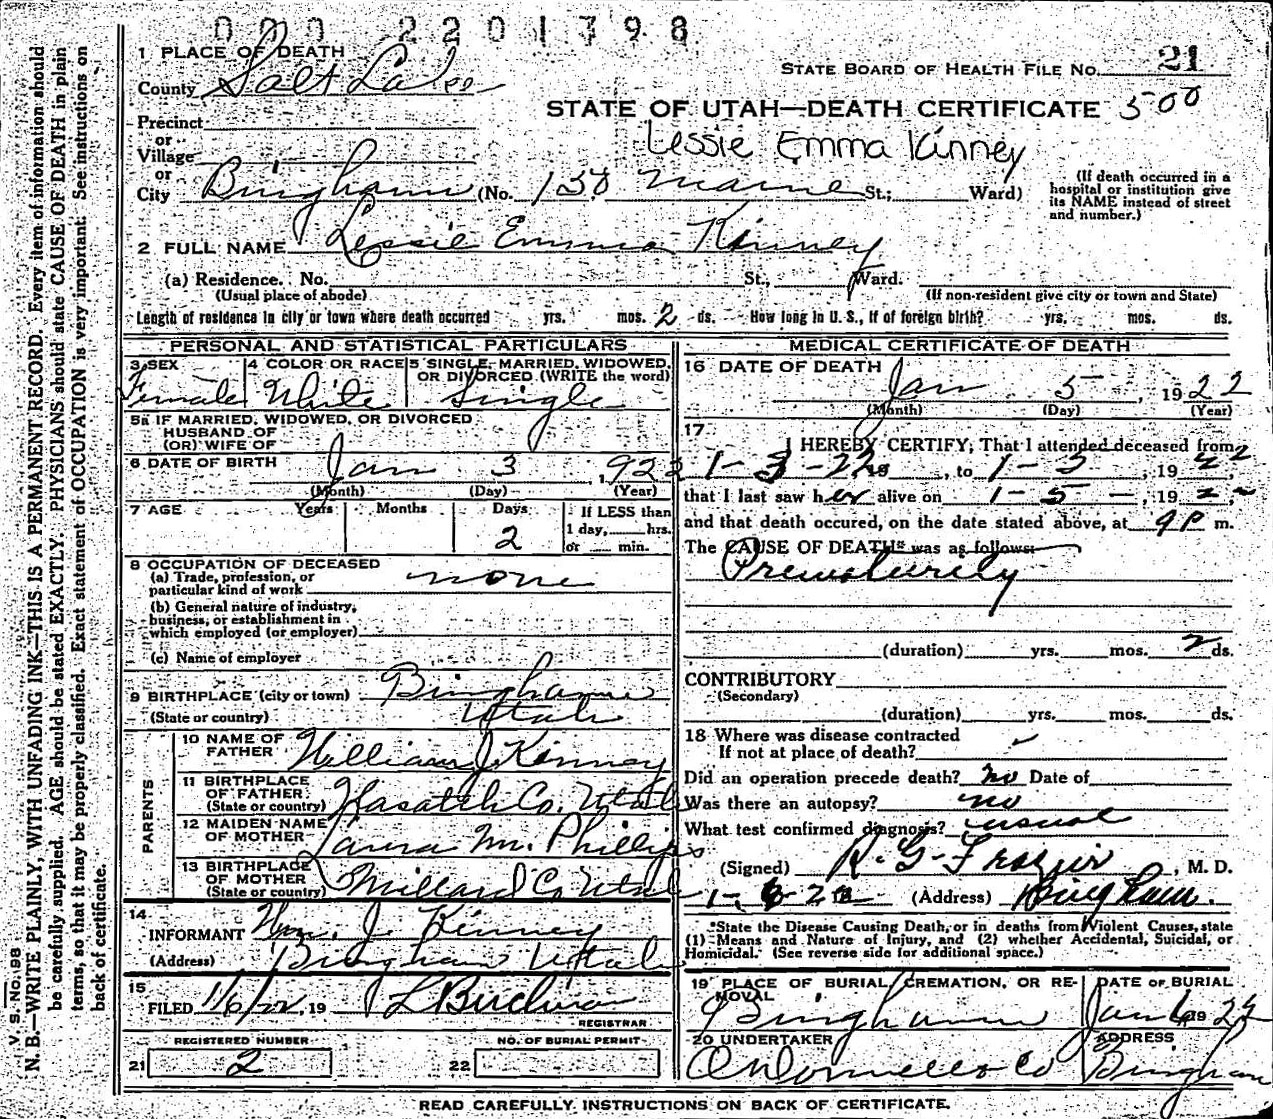 000 2201398
1 PLACE OF DEATH
County Salt Lake
STATE BOARD OF HEALTH FILE NO. 21
STATE OF UTAH—DEATH CERTIFICATE 500
Lessie Emma Kinney
Precinct
or
Village
or
City Bingham (No. 158 Maine St.; Ward)
(If death occurred in a
hospital or institution give
its NAME instead of street
and number.)
2 FULL NAME Lessie Emma Kinney
(a) Residence. No. St., Ward.
(Usual place of abode) (If non-resident give city or town and State)
Length of residence in city or town where death occurred yrs. mos. 2 ds. How long in U. S., if of foreign birth? yrs. mos. ds.
PERSONAL AND STATISTICAL PARTICULARS
3 SEX 4 COLOR OR RACE 5 SINGLE, MARRIED, WIDOWED,
OR DIVORCED (WRITE the word)
Female White Single
5a IF MARRIED, WIDOWED, OR DIVORCED
HUSBAND OF
(OR) WIFE OF
6 DATE OF BIRTH Jan 3 1922
(Month) (Day) (Year)
7 AGE Years Months Days If LESS than
1 day, hrs.
2 or min.
8 OCCUPATION OF DECEASED
(a) Trade, profession, or
particular kind of work none
(b) General nature of industry,
business, or establishment in
which employed (or employer)
(c) Name of employer
9 BIRTHPLACE (city or town) Bingham
(State or country) Utah
PARENTS
10 NAME OF
FATHER William J. Kinney
11 BIRTHPLACE
OF FATHER
(State or country) Wasatch Co. Utah
12 MAIDEN NAME
OF MOTHER Laura M. Phillips
13 BIRTHPLACE
OF MOTHER
(State or country) Millard Co Utah
14
INFORMANT Wm. J. Kinney
(Address) Bingham Utah
15
FILED 1/6/22, 19
REGISTRAR
REGISTERED NUMBER NO. OF BURIAL PERMIT
21 2 22
MEDICAL CERTIFICATE OF DEATH
16 DATE OF DEATH
Jan 5, 1922
(Month) (Day) (Year)
17
I HEREBY CERTIFY, That I attended deceased from
1-3-22 19, to 1-5, 1922,
that I last saw her alive on 1-5-, 1922
and that death occured, on the date stated above, at 9 P m.
The CAUSE OF DEATH* was as follows:
Prematurity
(duration) yrs. mos. 2 ds.
CONTRIBUTORY
(Secondary)
(duration) yrs. mos. ds.
18 Where was disease contracted
If not at place of death?
Did an operation precede death? no Date of
Was there an autopsy? no
What test confirmed diagnosis? usual
(Signed) R. G. Frazier, M. D.
1-6-22 (Address) Bingham.
*State the Disease Causing Death, or in deaths from Violent Causes, state
(1) Means and Nature of Injury, and (2) whether Accidental, Suicidal, or
Homicidal. (See reverse side for additional space.)
19 PLACE OF BURIAL, CREMATION, OR RE-
MOVAL DATE OF BURIAL
Bingham Jan 6 19 22
20 UNDERTAKER ADDRESS
O'Donnell & Co Bingham
READ CAREFULLY INSTRUCTIONS ON BACK OF CERTIFICATE.
V. S. NO. 98
N. B.—WRITE PLAINLY, WITH UNFADING INK—THIS IS A PERMANENT RECORD. Every item of information should
be carefully supplied. AGE should be stated EXACTLY. PHYSICIANS should state CAUSE OF DEATH in plain
terms, so that it may be properly classified. Exact statement of OCCUPATION is very important. See instructions on
back of certificate.